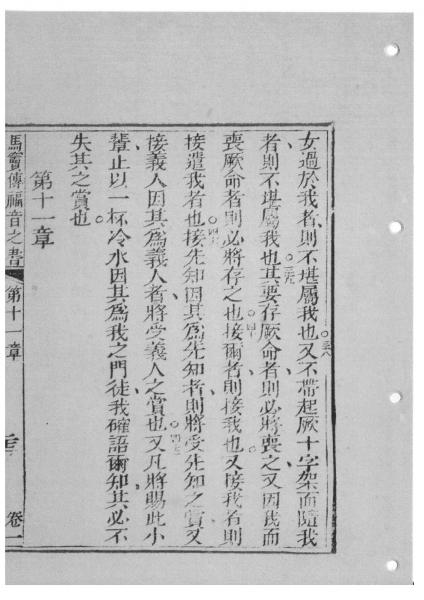 女過於我者、則不堪屬我也。三八又不帶起厥十字架而隨我
者、則不堪屬我也。三九其要存厥命者、則必將喪之、又因我而
喪厥命者則必將存之也。四十接爾者、則接我也。又接我者則
接遣我者也。四一接先知因其為先知者、則將受先知之賞、又
接義人因其為義人者、將受義人之賞也。四二又凡將賜此小
輩、止以一杯冷水因其為我之門徒、我確語爾知其必不
失其之賞也。
第十一章
馬竇傳福音之書 第十一章 卷一